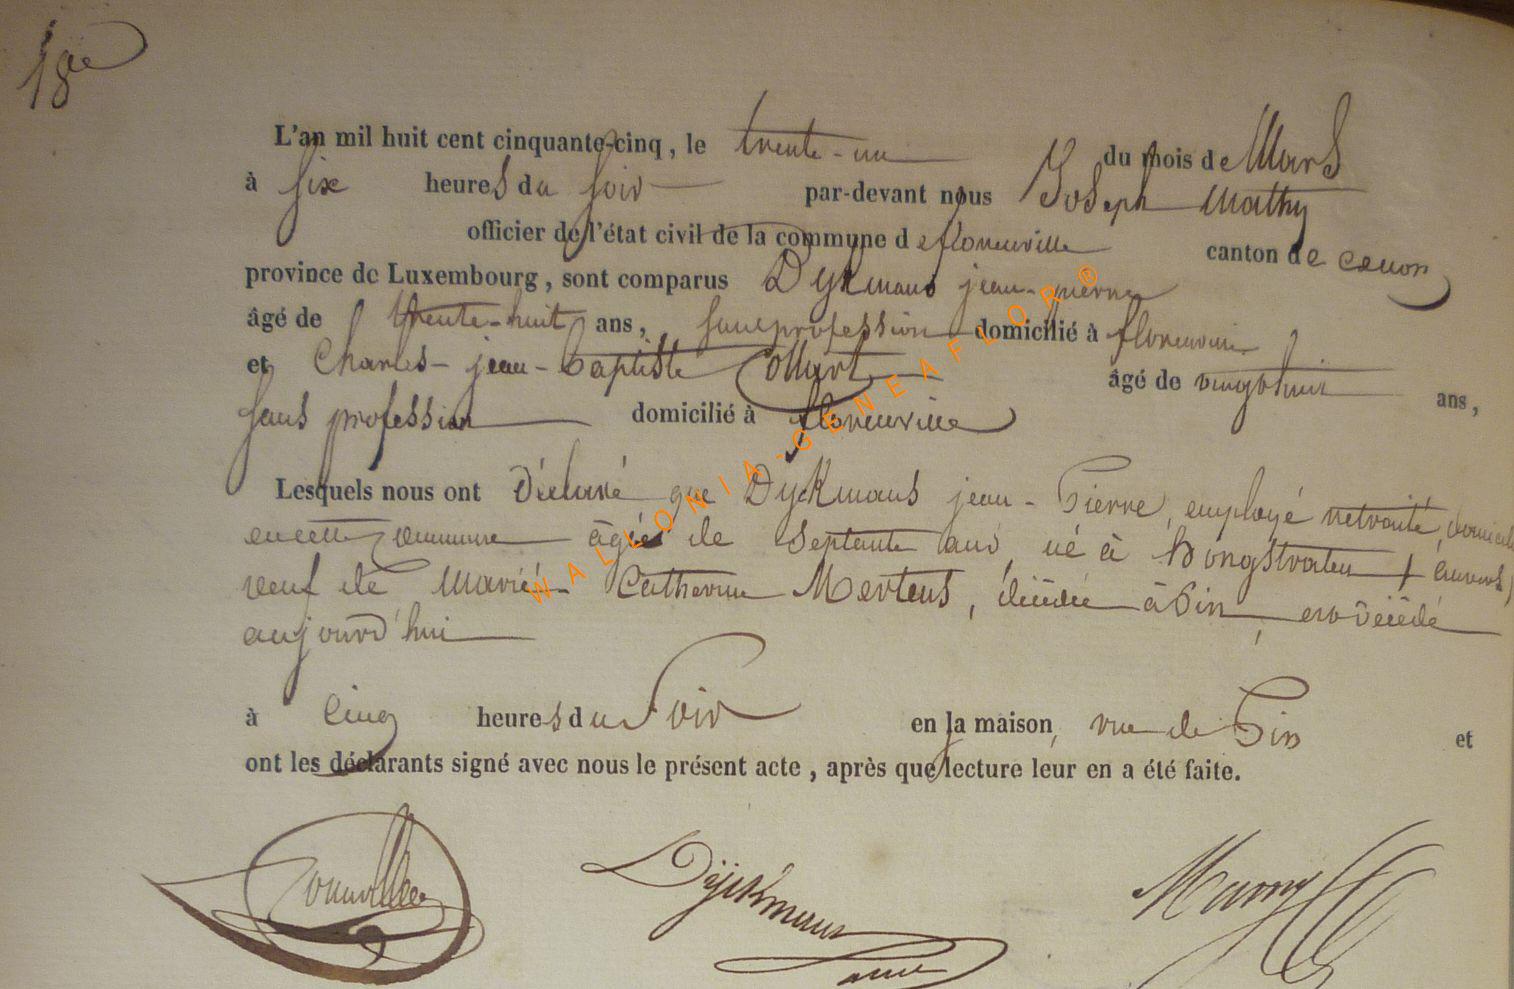 18e
L'an mil huit cent cinquante-cinq, le trente-un du mois de Mars
à six heures du soir par-devant nous Joseph Mathy
officier de l'état civil de la commune de florenville canton de
province de Luxembourg, sont comparus Dykmans jean-pierre
âgé de trente-huit ans, sans profession domicilié à florenville
et Charles-jean-baptiste Collart âgé de vingt huit ans,
sans profession domicilié à florenville
Lesquels nous ont Déclaré que Dyckmans jean-Pierre, employé retraité,
en cette commune âgé de septante ans, né à Hongstraten (anvers)
veuf de Marie Catherine Mertens, décédée à Pin, est décédé
aujourd'hui
à cinq heures du soir en la maison, rue de Pin et
ont les déclarants signé avec nous le présent acte, après que lecture leur en a été faite.
Dyckmans
WALLONIA-GENEAFLOR®